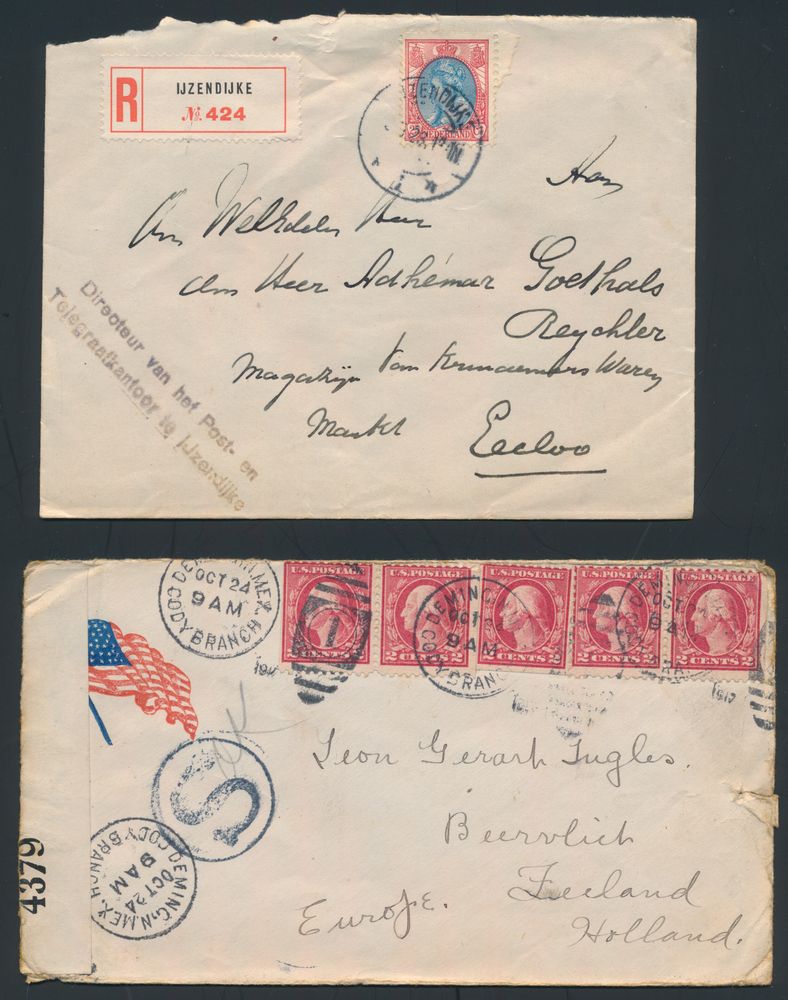 R
IJZENDIJKE
No. 424
NEDERLAND
Aan
Den WelEdelen Heer
den Heer Adhémar Goethals
Reychler
Magazijn van
Markt
Eecloo
Directeur van het Post- en
Telegraafkantoor te IJzendijke
U.S. POSTAGE
2 CENTS 2
U.S. POSTAGE
2 CENTS 2
U.S. POSTAGE
2 CENTS 2
U.S. POSTAGE
2 CENTS 2
U.S. POSTAGE
2 CENTS 2
DEMING, N. MEX.
OCT 24
9 AM
CODY BRANCH
1
DEMING
OCT 24
9 AM
CODY BRANCH
1917
S
Leon Gerard Ingles.
Zeeland
Europe.
Holland.
DEMING, N MEX.
OCT 24
9 AM
CODY BRANCH
4379